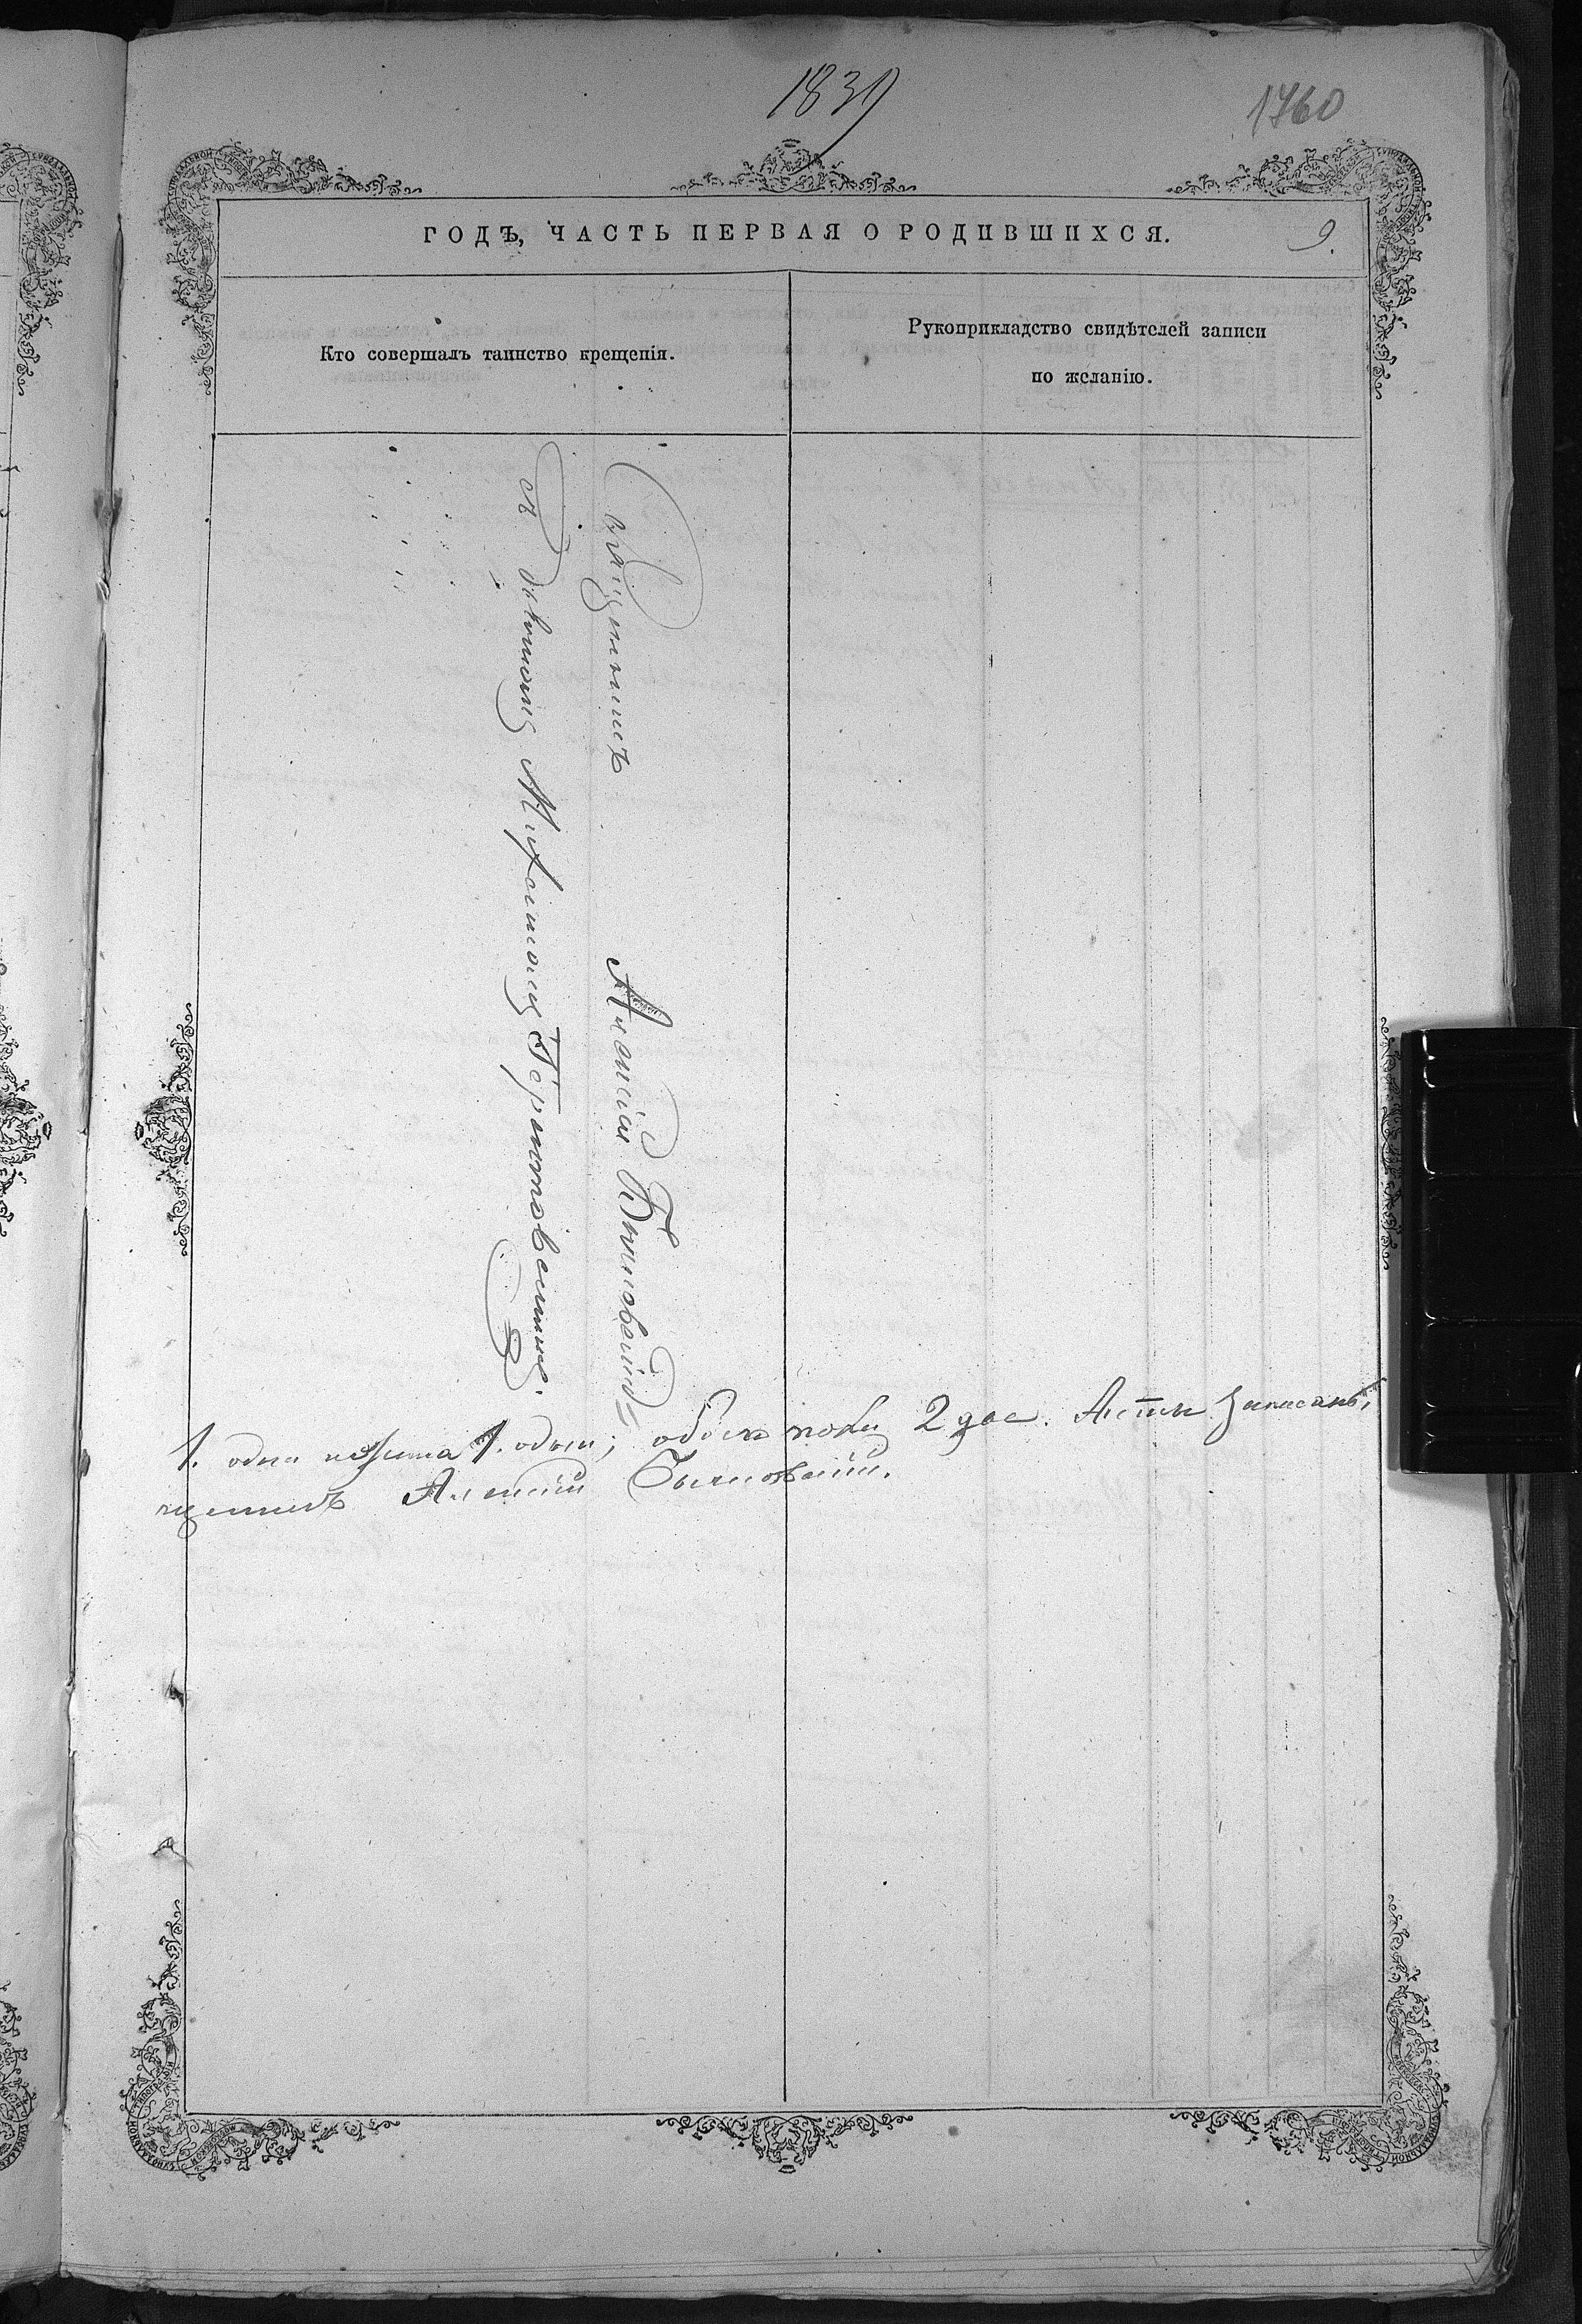 1839
1760
ГОДЪ, ЧАСТЬ ПЕРВАЯ О РОДИВШИХСЯ.
9.
Кто совершалъ таинство крещенія.
Рукоприкладство свидѣтелей записи
по желанію.
Священникъ Алексій Быковскій
съ дьякономъ Михаиломъ
1. одинъ женска 1. одинъ; обоего пола 2 двое. Акты записаны,
щенникъ Алексій Быковскій.